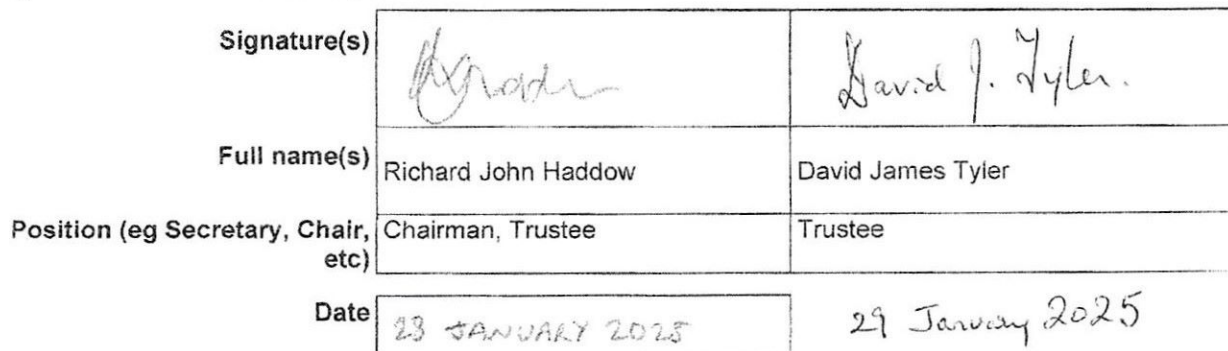 Signature(s) David J. Tyler.
Full name(s) Richard John Haddow David James Tyler
Position (eg Secretary, Chair, Chairman, Trustee Trustee
etc)
Date JANUARY 2025 29 January 2025